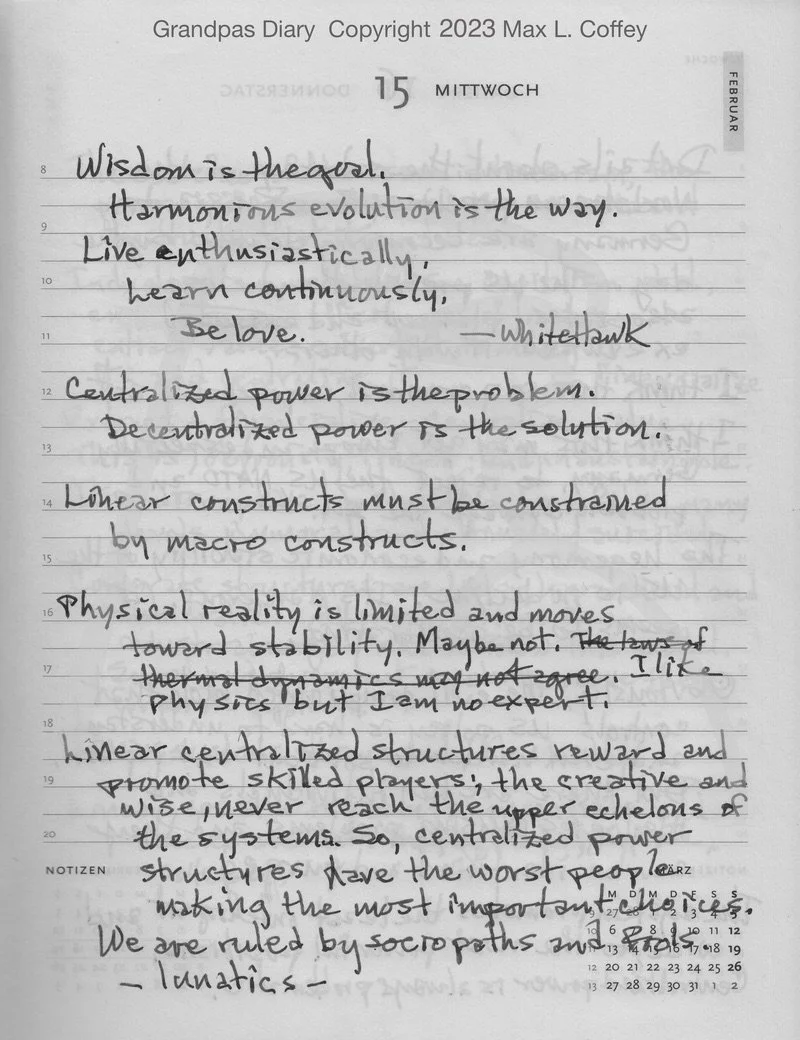 Grandpas Diary Copyright 2023 Max L. Coffey
15 MITTWOCH
FEBRUAR
8 Wisdom is the goal.
Harmonious evolution is the way.
9
Live enthusiastically,
10 Learn continuously,
11 Be love. — WhiteHawk
12 Centralized power is the problem.
Decentralized power is the solution.
13
14 Linear constructs must be constrained
by macro constructs.
15
16 Physical reality is limited and moves
toward stability. Maybe not. The laws of
17 thermal dynamics may not agree. I like
physics but I am no expert.
18
Linear centralized structures reward and
19 promote skilled players; the creative and
wise, never reach the upper echelons of
20 the systems. So, centralized power
NOTIZEN structures have the worst people
making the most important choices.
We are ruled by sociopaths and fools.
— lunatics —
MÄRZ
M D M D F S S
27 28 1 2 3 4 5
10 6 7 8 9 10 11 12
13 14 15 16 17 18 19
12 20 21 22 23 24 25 26
13 27 28 29 30 31 1 2